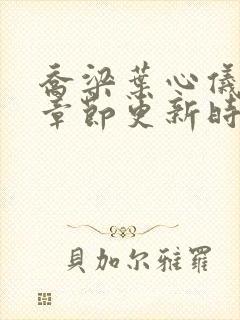 喬梁葉心儀
章節更新時
貝加尔雅羅